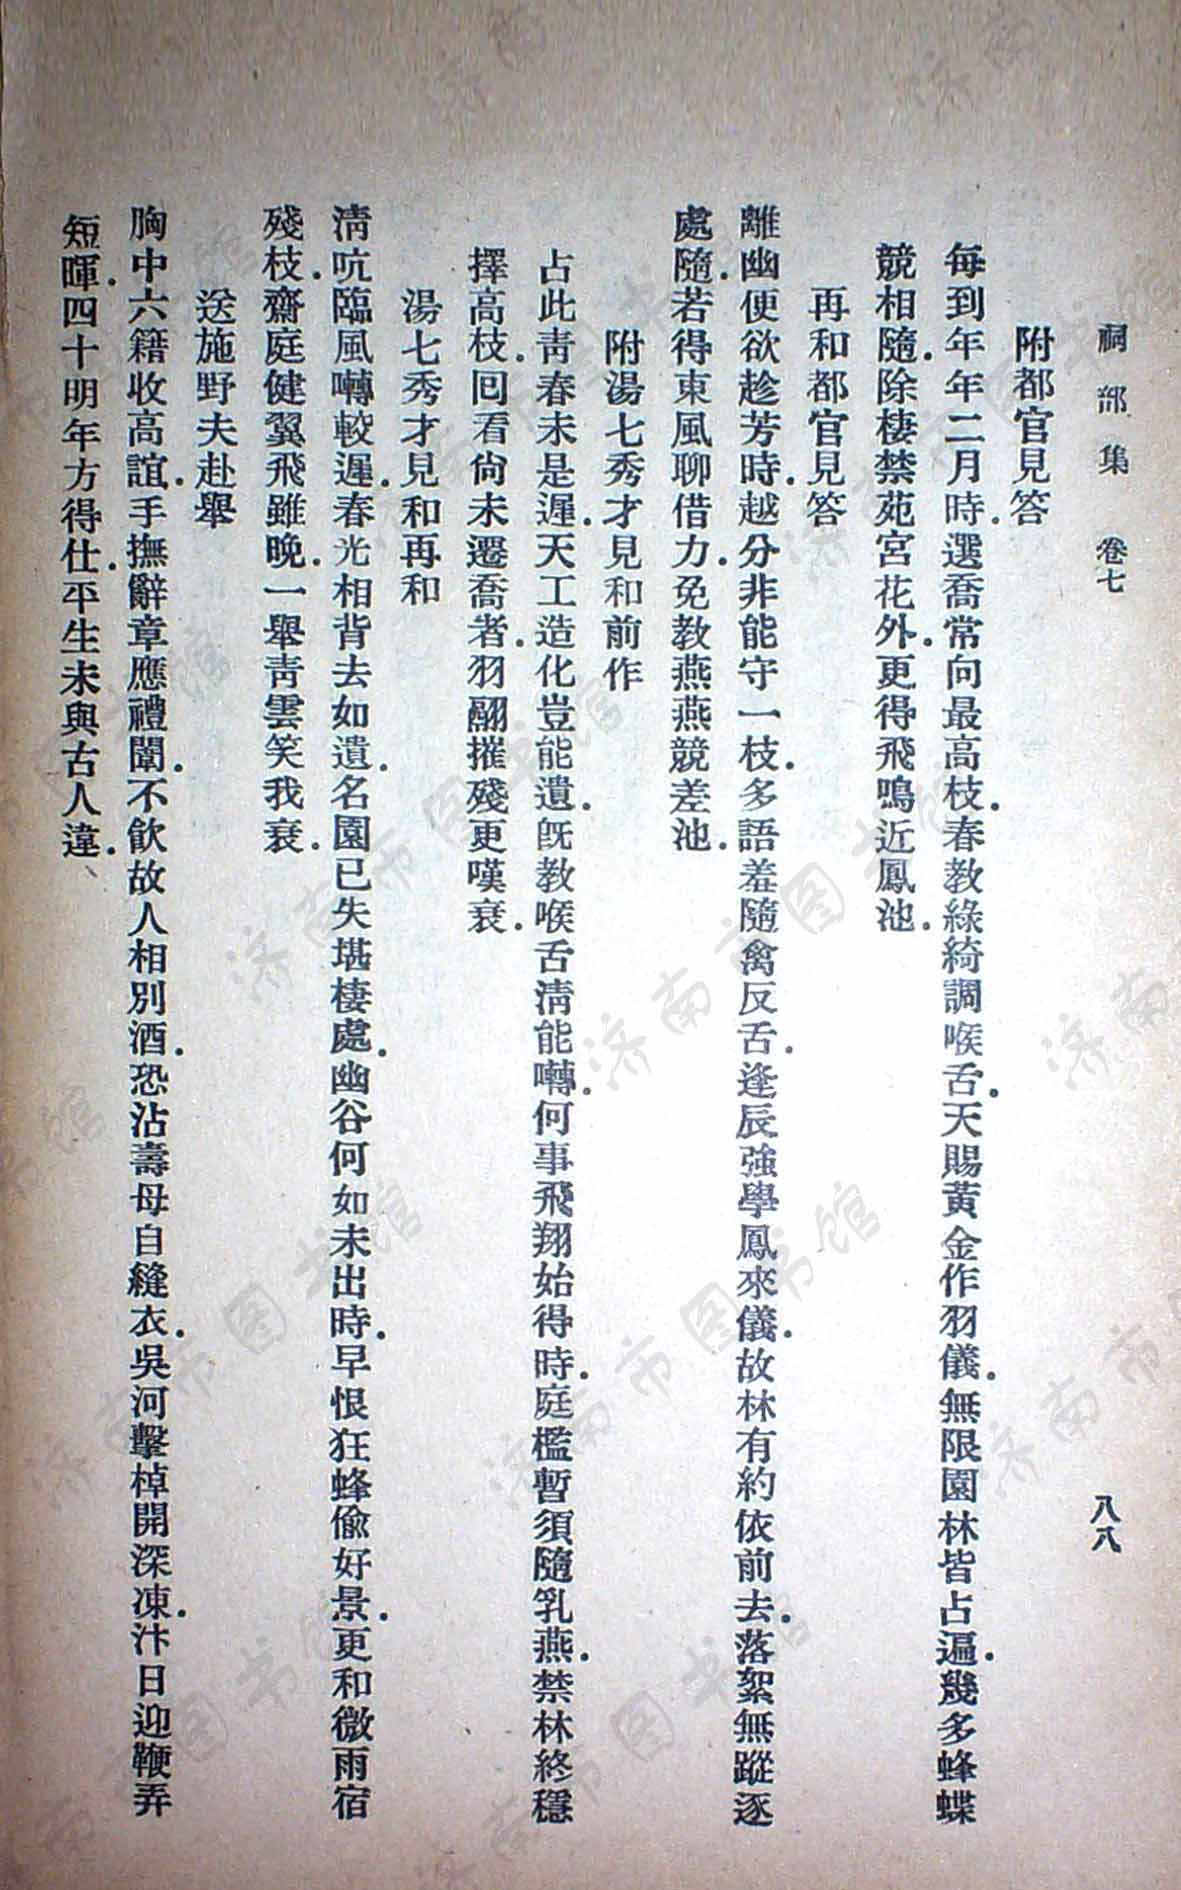 祠部集　卷七　八八
附都官見答
每到年年二月時．選喬常向最高枝．春教綠綺調喉舌．天賜黃金作羽儀．無限園林皆占遍．幾多蜂蝶
競相隨．除棲禁苑宮花外．更得飛鳴近鳳池．
再和都官見答
離幽便欲趁芳時．越分非能守一枝．多語羞隨禽反舌．逢辰強學鳳來儀．故林有約依前去．落絮無蹤逐
處隨．若得東風聊借力．免教燕燕競差池．
附湯七秀才見和前作
占此青春未是遲．天工造化豈能遺．既教喉舌淸能囀．何事飛翔始得時．庭檻暫須隨乳燕．禁林終穩
擇高枝．回看尙未遷喬者．羽翮摧殘更嘆衰．
湯七秀才見和再和
淸吭臨風囀較遲．春光相背去如遺．名園已失堪棲處．幽谷何如未出時．早恨狂蜂偷好景．更和微雨宿
殘枝．齋庭健翼飛雖晚．一舉靑雲笑我衰．
送施野夫赴舉
胸中六籍收高誼．手撫辭章應禮闈．不飮故人相別酒．恐沾壽母自縫衣．吳河擊棹開深凍．汴日迎鞭弄
短暉．四十明年方得仕．平生未與古人違．
济南市图书馆